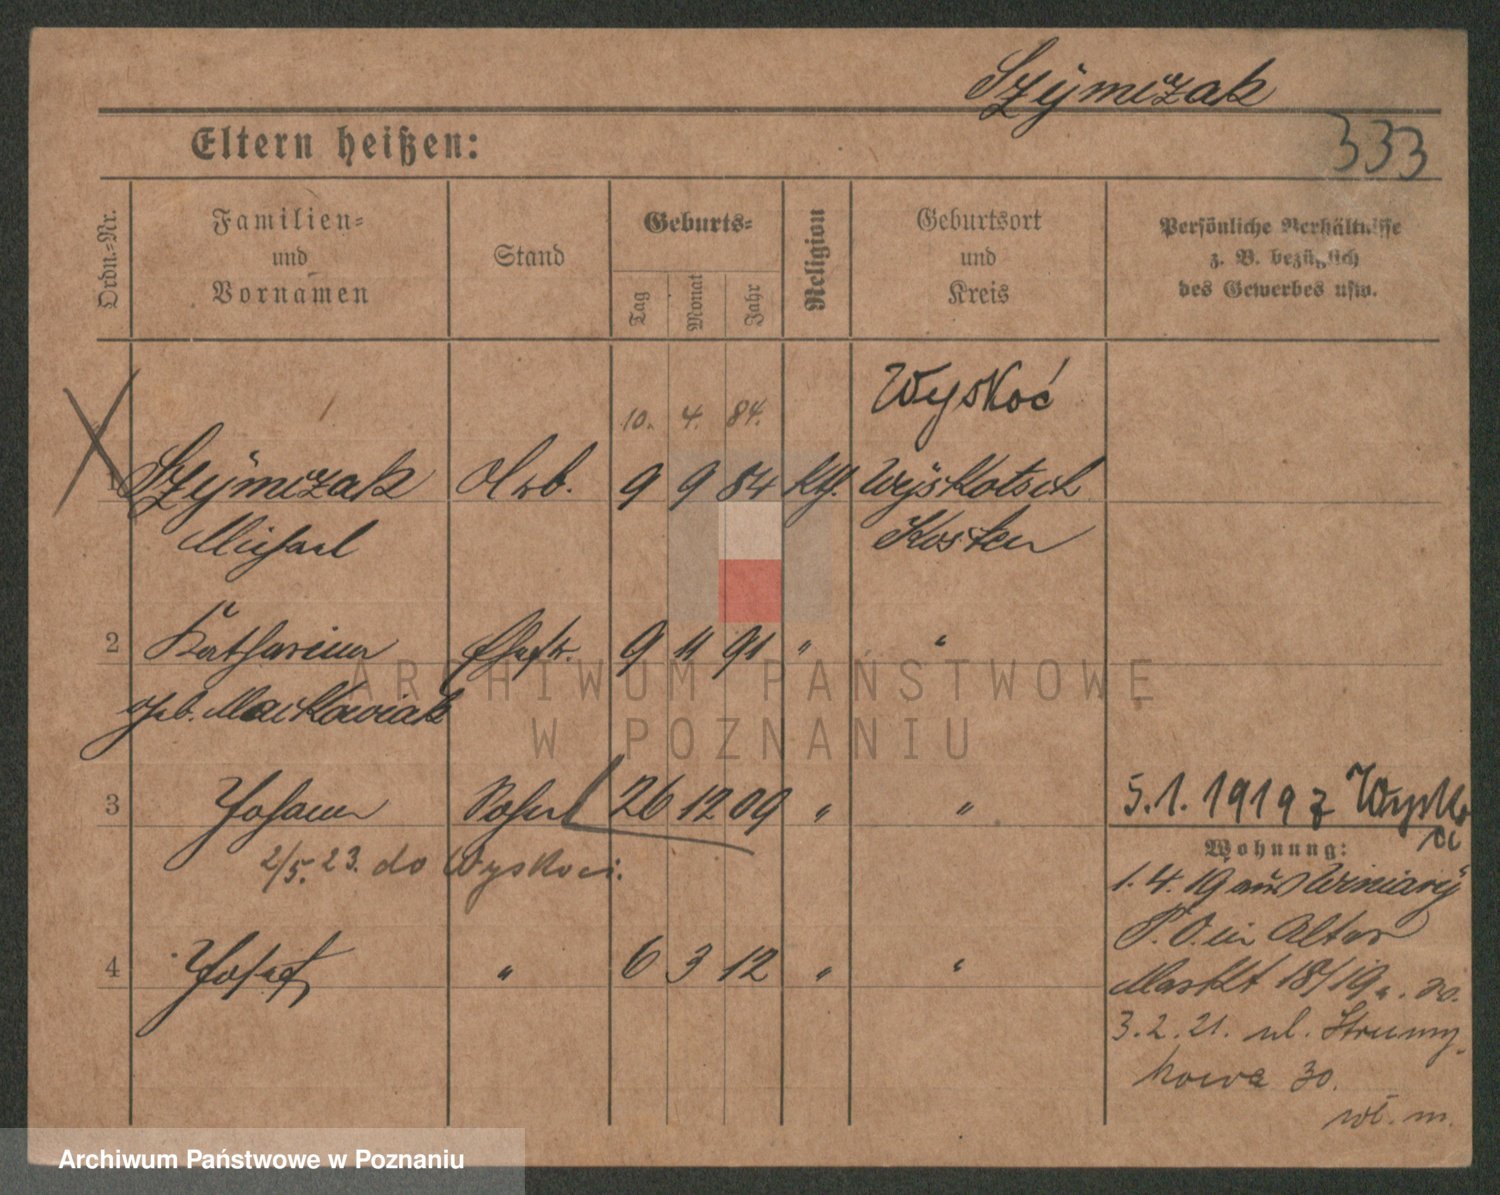 Szymczak
333
Eltern heißen:
Ordn.-Nr.
Familien-
und
Vornamen
Stand
Geburts-
Tag
Monat
Jahr
Religion
Geburtsort
und
Kreis
Persönliche Verhältnisse
z. B. bezüglich
des Gewerbes usw.
Wyskoć
10. 4. 84.
1 Szymczak Arb. 9 9 84 Kth. Wyskotsch
Michael Kosten
2 Katharina Ehefr. 9 11 91 " "
geb. Maćkowiak
3 Johann Sohn 26 12 09 " "
2/5. 23. do Wyskoci.
4 Josef " 6 3 12 " "
5.1.1919 z Wysko
ci
Wohnung:
1.4.19 aus Winiary
P. O. in Alter
Markt 18/19
3.2.21. ul. Strumy-
kowa 30.
wł. m.
ARCHIWUM PAŃSTWOWE
W POZNANIU
Archiwum Państwowe w Poznaniu